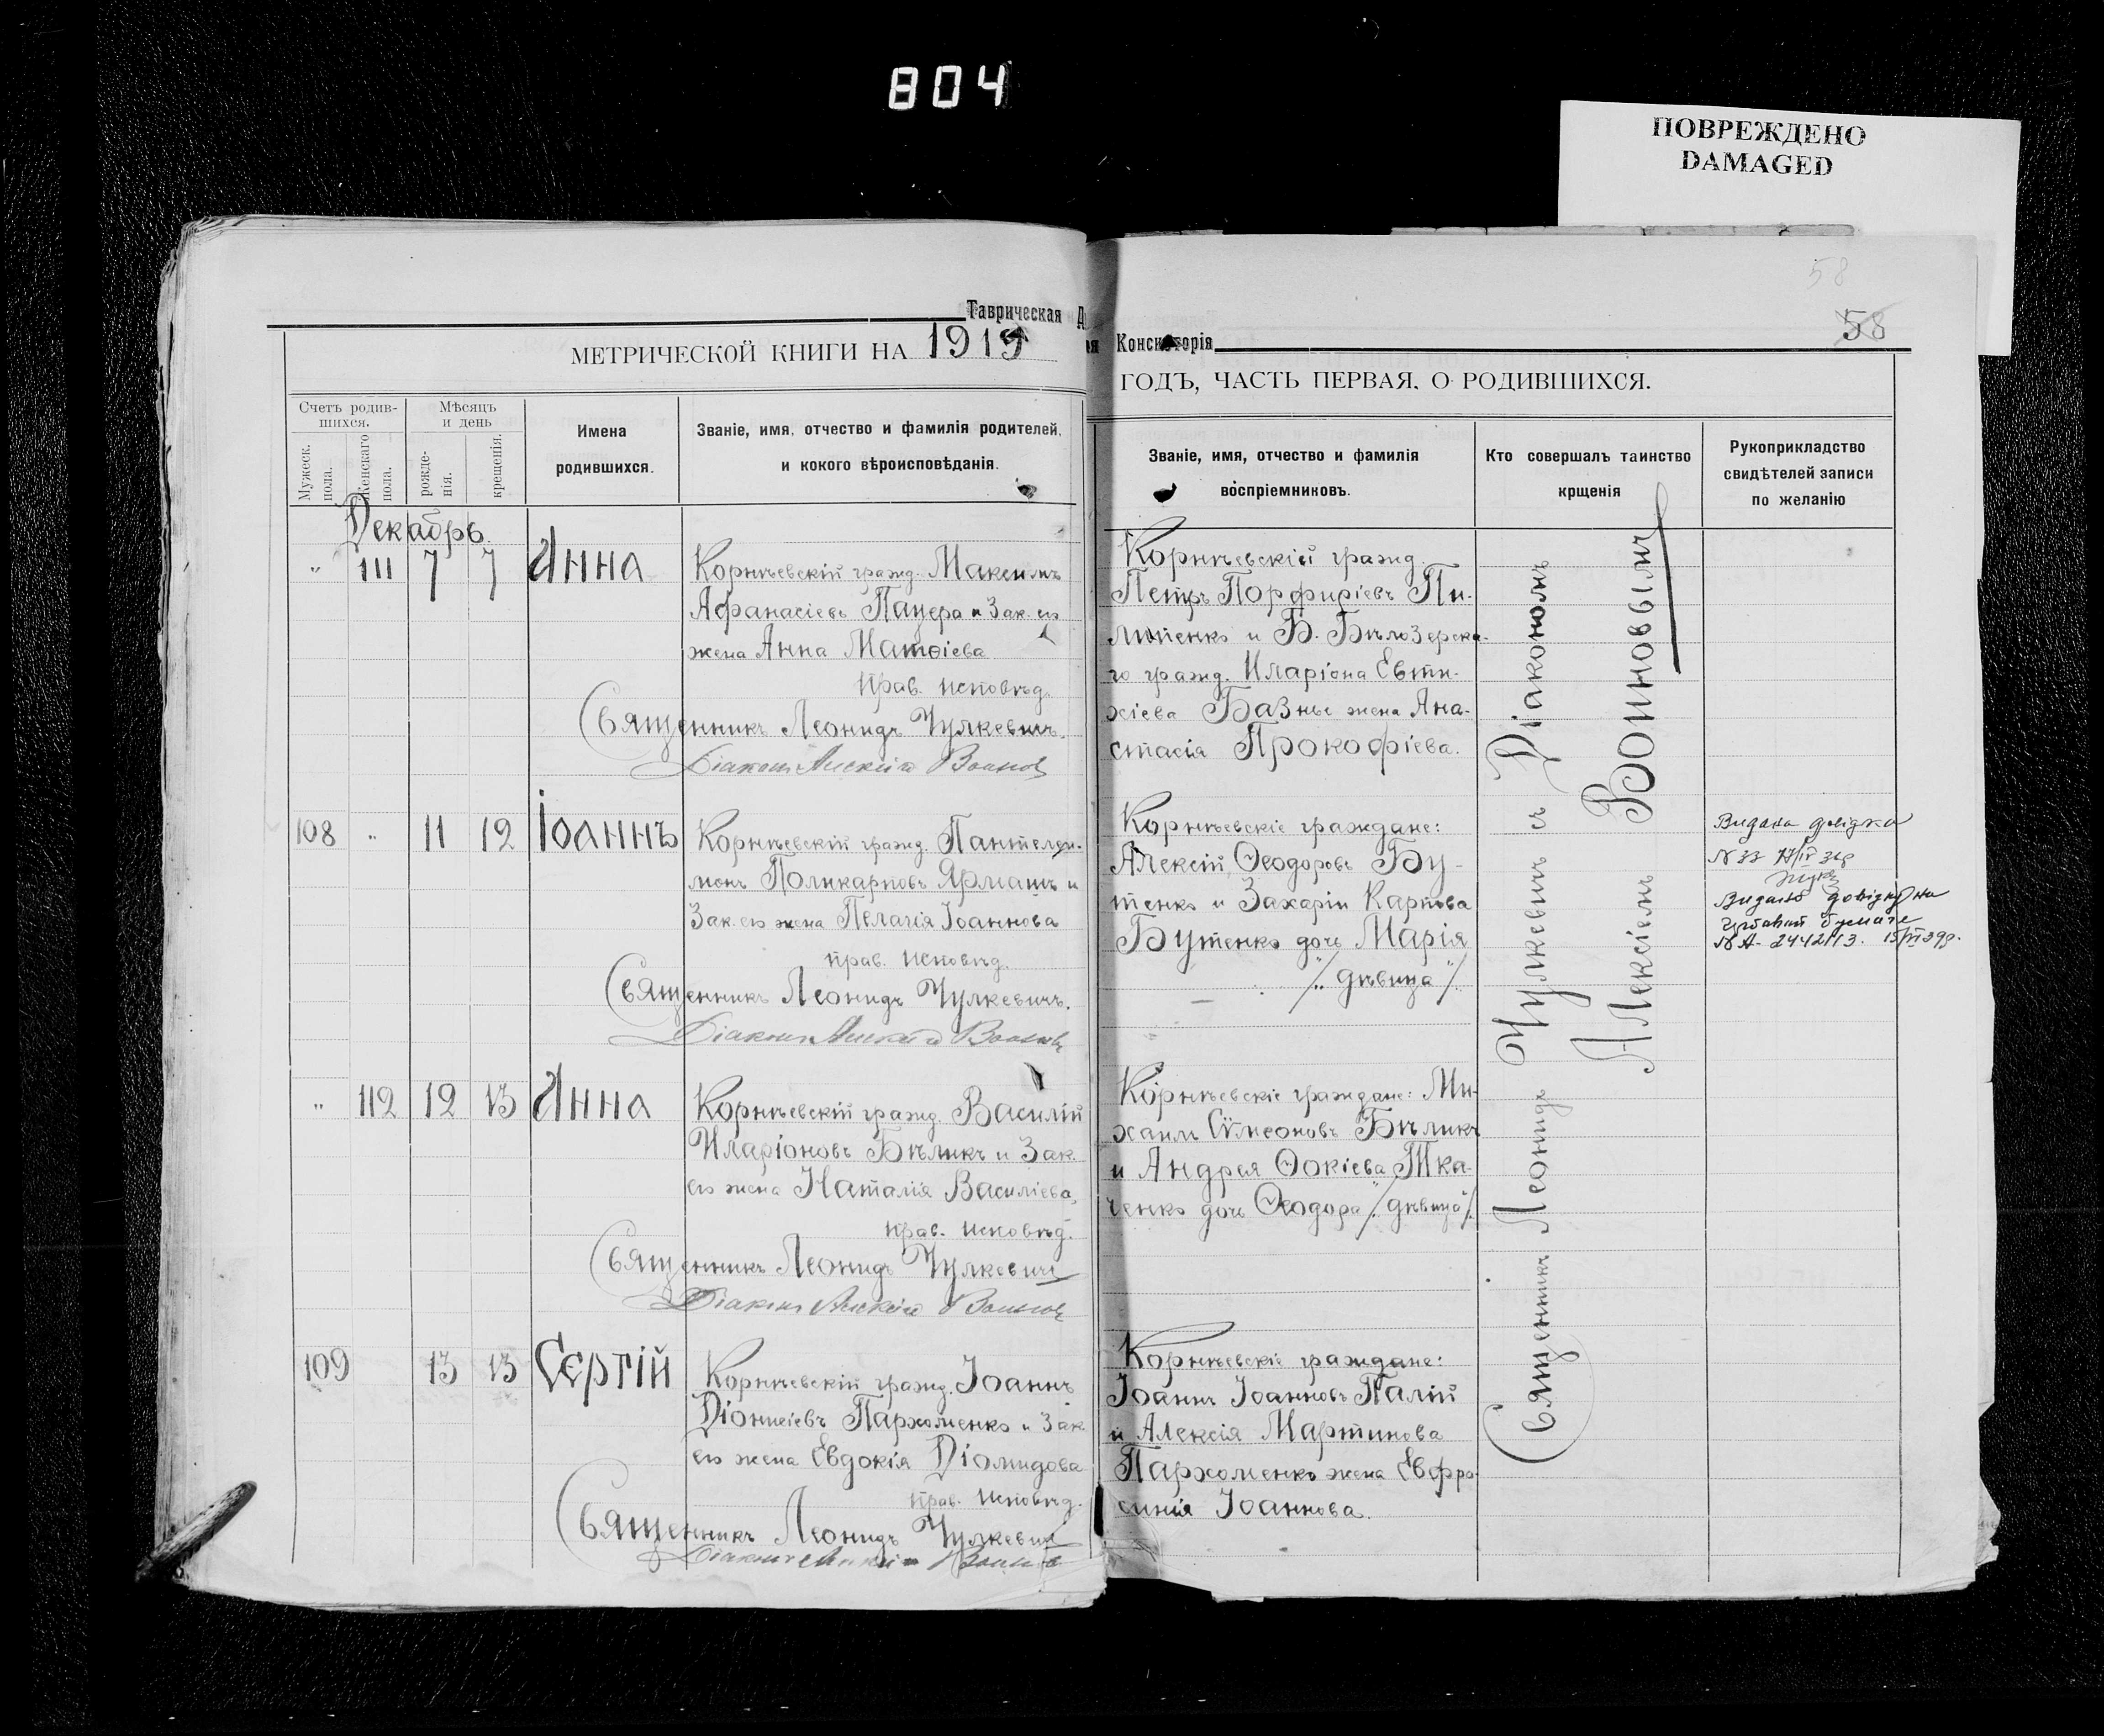 804
ПОВРЕЖДЕНО
DAMAGED
58
58
Таврическая Д
МЕТРИЧЕСКОЙ КНИГИ НА 1919
Счетъ родив-
шихся.
Мѣсяцъ
и день
Мужеск.
пола.
Женскаго
пола.
рожде-
нія.
крещенія.
Имена
родившихся.
Званіе, имя, отчество и фамилія родителей,
и кокого вѣроисповѣданія.
Декабрь.
" 111 7 7 Анна
Корнѣевскій гражд. Максимъ
Афанасіевъ Пацера и Зак. его
жена Анна Матѳіева
прав. исповѣд.
Священникъ Леонидъ Чулкевичъ.
Діаконъ Алексій Воиновъ
108 " 11 12 Іоаннъ
Корнѣевскій гражд. Пантелеи-
монъ Поликарповъ Ярмашъ и
Зак. его жена Пелагія Іоаннова
прав. исповѣд.
Священникъ Леонидъ Чулкевичъ.
Діаконъ Алексій Воиновъ
" 112 12 13 Анна
Корнѣевскій гражд. Василій
Иларіоновъ Бѣликъ и Зак.
его жена Наталія Василіева,
прав. исповѣд.
Священникъ Леонидъ Чулкевичъ
Діаконъ Алексій Воиновъ
109 13 13 Сергій
Корнѣевскій гражд. Іоаннъ
Діонисіевъ Пархоменко и Зак.
его жена Евдокія Діомидова
прав. исповѣд.
Священникъ Леонидъ Чулкевичъ
Діаконъ Алексій Воиновъ
ая Консисторія
ГОДЪ, ЧАСТЬ ПЕРВАЯ, О РОДИВШИХСЯ.
Званіе, имя, отчество и фамилія
воспріемниковъ.
Кто совершалъ таинство
крщенія
Рукоприкладство
свидѣтелей записи
по желанію
Корнѣевскій гражд.
Петръ Порфиріевъ Пи-
липенко и Б. Бѣлозерска-
го гражд. Иларіона Евти-
хіева Базные жена Ана-
стасія Прокофіева.
Корнѣевскіе граждане:
Алексій Ѳеодоровъ Бу-
тенко и Захаріи Карпова
Бутенко дочь Марія
/"дѣвица"/.
Корнѣевскіе граждане: Ми-
хаилъ Сѵмеоновъ Бѣликъ
и Андрея Ѳокіева Тка-
ченко дочь Ѳеодора /"дѣвица"/.
Корнѣевскіе граждане:
Іоаннъ Іоанновъ Палій
и Алексія Мартинова
Пархоменко жена Евфро-
синія Іоаннова.
Священникъ Леонидъ Чулкевичъ съ Діакономъ
Алексіемъ Воиновымъ
Видана довідка
N 33
Видано довідку на
бумаге
N А-2442/13.